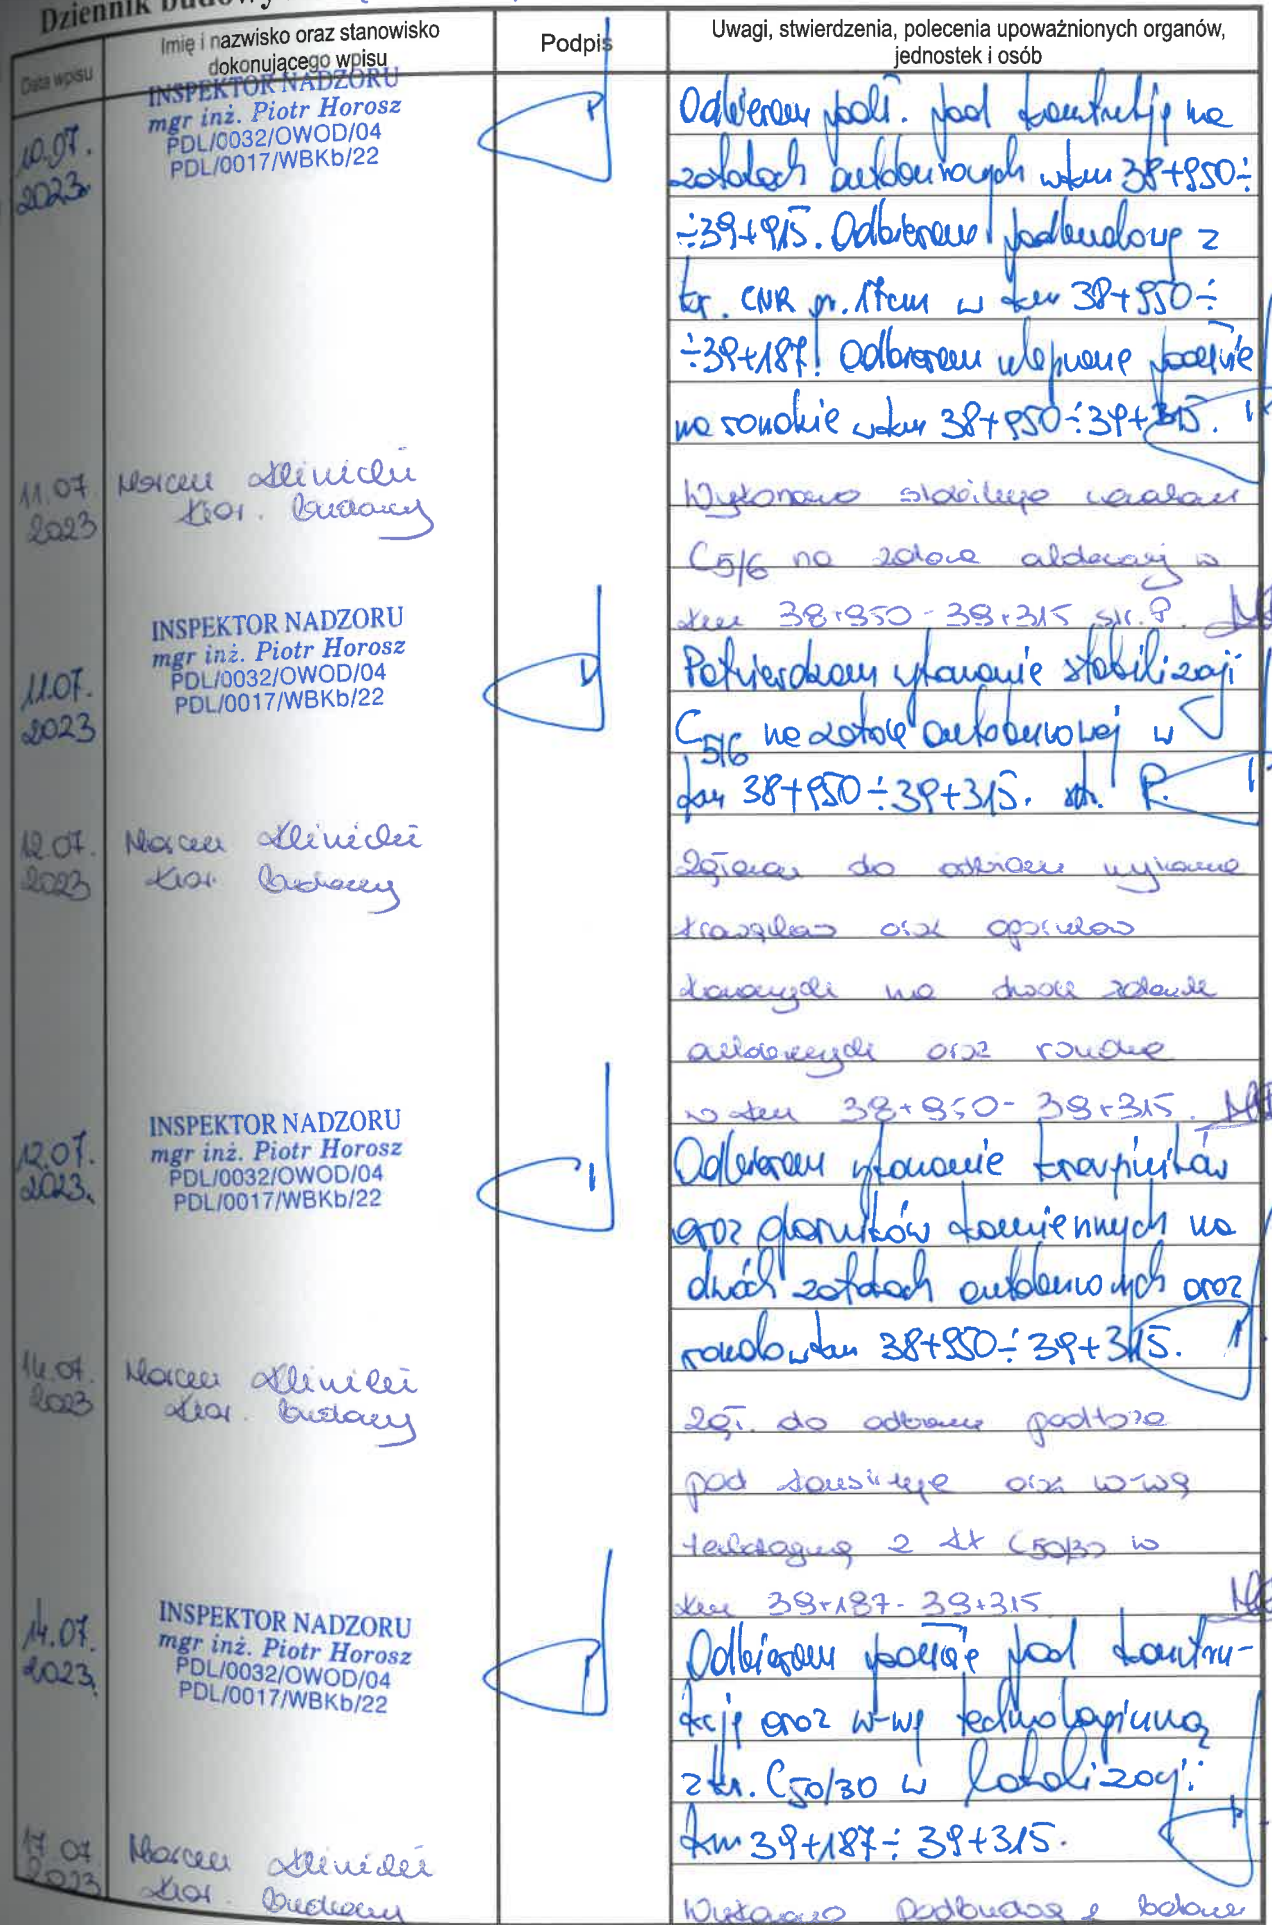 Dziennik budowy
Data wpisu
Imię i nazwisko oraz stanowisko
dokonującego wpisu
Podpis
Uwagi, stwierdzenia, polecenia upoważnionych organów,
jednostek i osób
10.07.
2023
INSPEKTOR NADZORU
mgr inż. Piotr Horosz
PDL/0032/OWOD/04
PDL/0017/WBKb/22
Odbieram podł. pod konstrukcję na
zatokach autobusowych w km 38+950÷
÷39+915. Odbieram podbudowę z
kr. CNR gr. 17cm w km 38+950÷
÷39+187! Odbieram ulepszone podłoże
na rondzie w km 38+950÷39+315.
11.07
2023
Marcin
Kier. Budowy
Wykonano stabilizację
C5/6 na zatoce autobusowej w
km 38+950-39+315 str. P.
11.07.
2023
INSPEKTOR NADZORU
mgr inż. Piotr Horosz
PDL/0032/OWOD/04
PDL/0017/WBKb/22
Potwierdzam wykonanie stabilizacji
C5/6 na zatoce autobusowej w
km 38+950÷39+315. str. P.
12.07.
2023
Marcin
Kier. Budowy
Zgłaszam do odbioru wykonanie
krawężników oraz oporników
kamiennych na dwóch zatokach
autobusowych oraz rondzie
w km 38+950-39+315.
12.07.
2023.
INSPEKTOR NADZORU
mgr inż. Piotr Horosz
PDL/0032/OWOD/04
PDL/0017/WBKb/22
Odbieram wykonanie krawężników
oraz oporników kamiennych na
dwóch zatokach autobusowych oraz
rondo w km 38+950÷39+315.
14.07.
2023
Marcin
Kier. Budowy
Zgł. do odbioru podłoże
pod konstrukcję oraz w-wę
technologiczną z kr C50/30 w
km 39+187-39+315
14.07.
2023,
INSPEKTOR NADZORU
mgr inż. Piotr Horosz
PDL/0032/OWOD/04
PDL/0017/WBKb/22
Odbieram podłoże pod konstru-
kcję oraz w-wę technologiczną
z kr. C50/30 w lokalizacji:
km 39+187÷39+315.
17.07
2023
Marcin
Kier. Budowy
Wykonano podbudowę z betonu